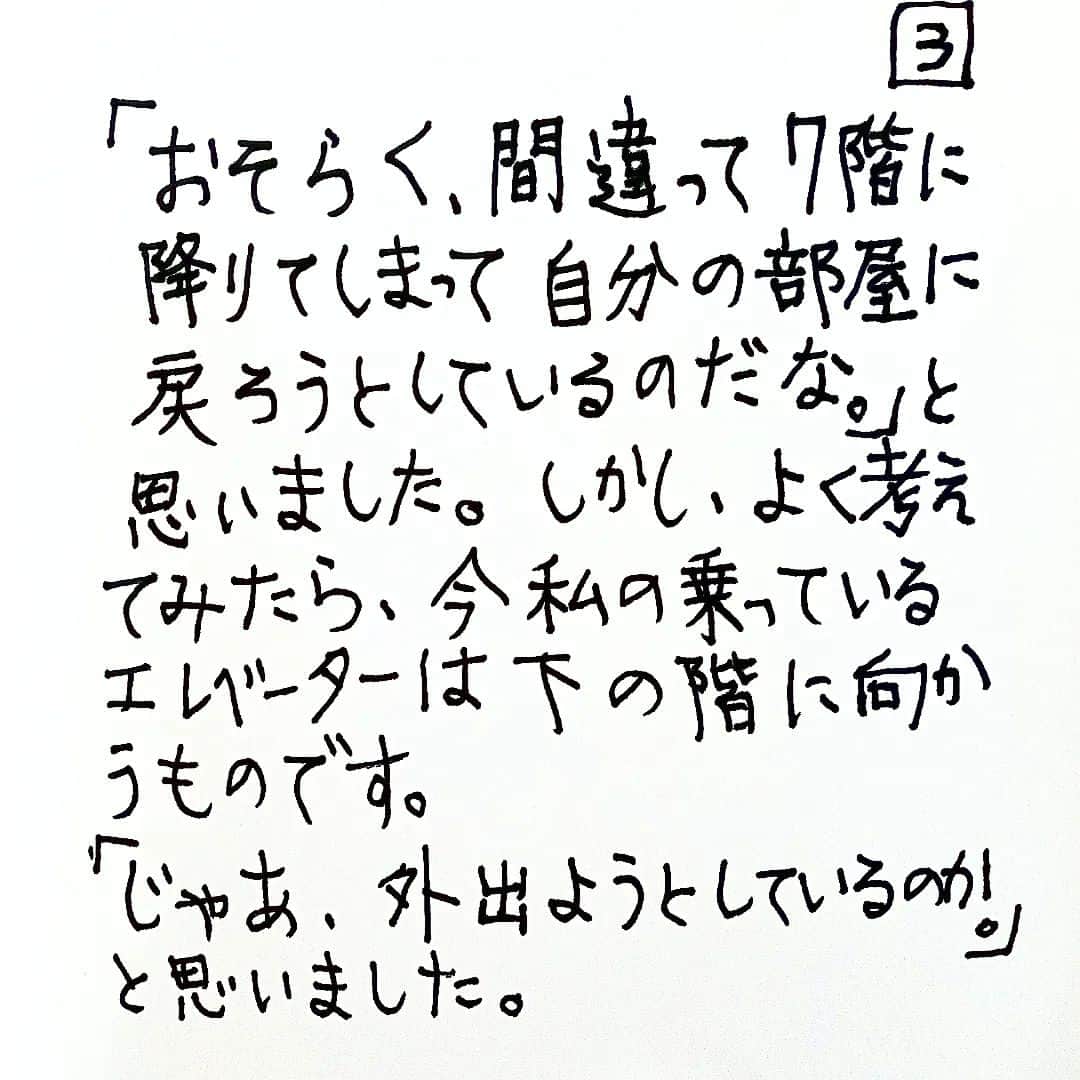 3
「おそらく、間違って7階に
降りてしまって自分の部屋に
戻ろうとしているのだな。」と
思いました。しかし、よく考え
てみたら、今私の乗っている
エレベーターは下の階に向か
うものです。
「じゃあ、外出ようとしているのか。」
と思いました。